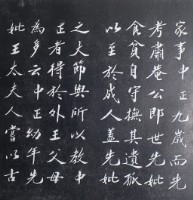 家事中正九歲而
考肅庵公郎世先妣
食貧自守撫其遺孤
以至於成人蓋先妣
之大節與所以教中
正者得於外王父母
為多云中正幼年先
妣王太夫人嘗以古